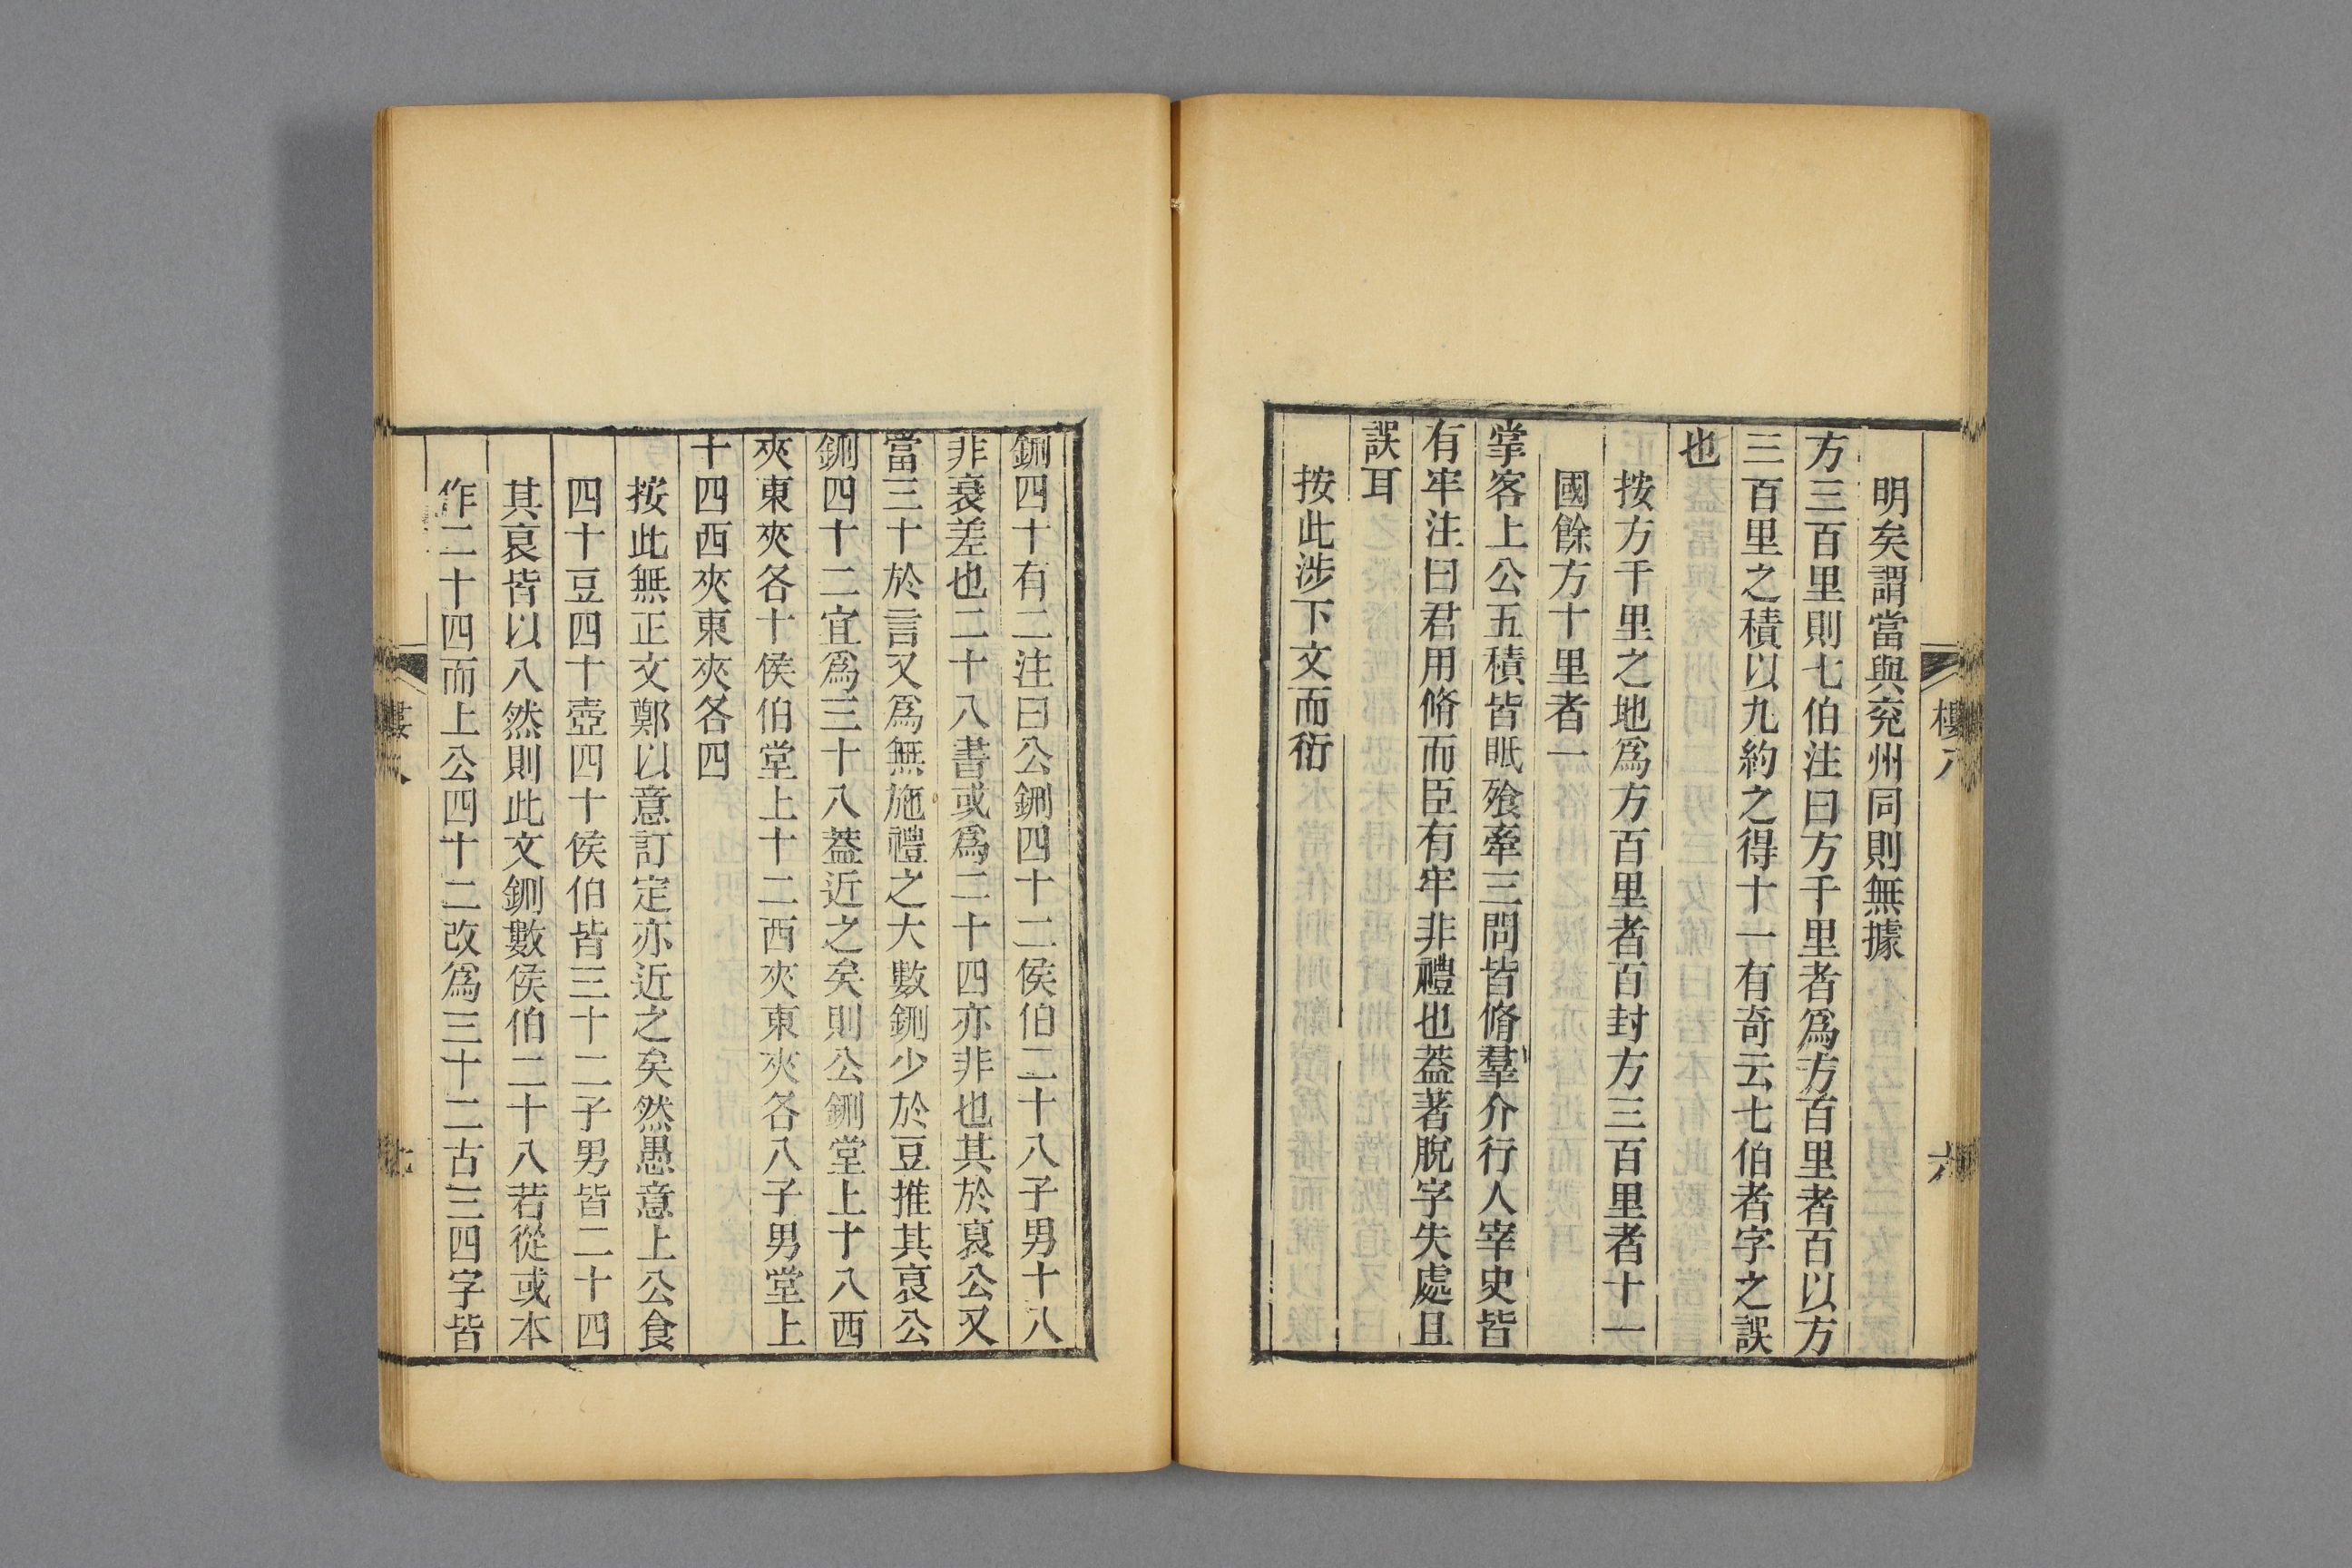 明矣謂當與兗州同則無據
方三百里則七伯注曰方千里者爲方百里者百以方
三百里之積以九約之得十一有奇云七伯者字之誤
也
按方千里之地爲方百里者百封方三百里者十一
國餘方十里者一
掌客上公五積皆眡飱牽三問皆脩羣介行人宰史皆
有牢注曰君用脩而臣有牢非禮也蓋著脫字失處且
誤耳
按此涉下文而衍
樓八
六
鉶四十有二注曰公鉶四十二侯伯二十八子男十八
非衰差也二十八書或爲二十四亦非也其於衰公又
當三十於言又爲無施禮之大數鉶少於豆推其衰公
鉶四十二宜爲三十八蓋近之矣則公鉶堂上十八西
夾東夾各十侯伯堂上十二西夾東夾各八子男堂上
十四西夾東夾各四
按此無正文鄭以意訂定亦近之矣然愚意上公食
四十豆四十壺四十侯伯皆三十二子男皆二十四
其衰皆以八然則此文鉶數侯伯二十八若從或本
作二十四而上公四十二改爲三十二古三四字皆